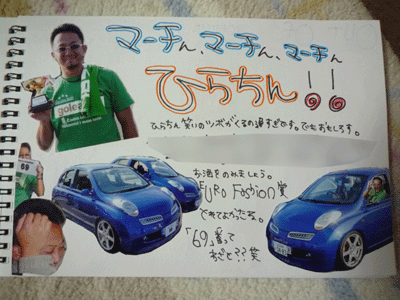 マーチん、マーチん、マーチん
ひらちん!!
ひらちん笑いのツボがくるの遅すぎです。でもおもしろす。
お酒をのみましょう。
EURO Fashion賞
とれてよかったね。
「69」番って
わざと??笑
69